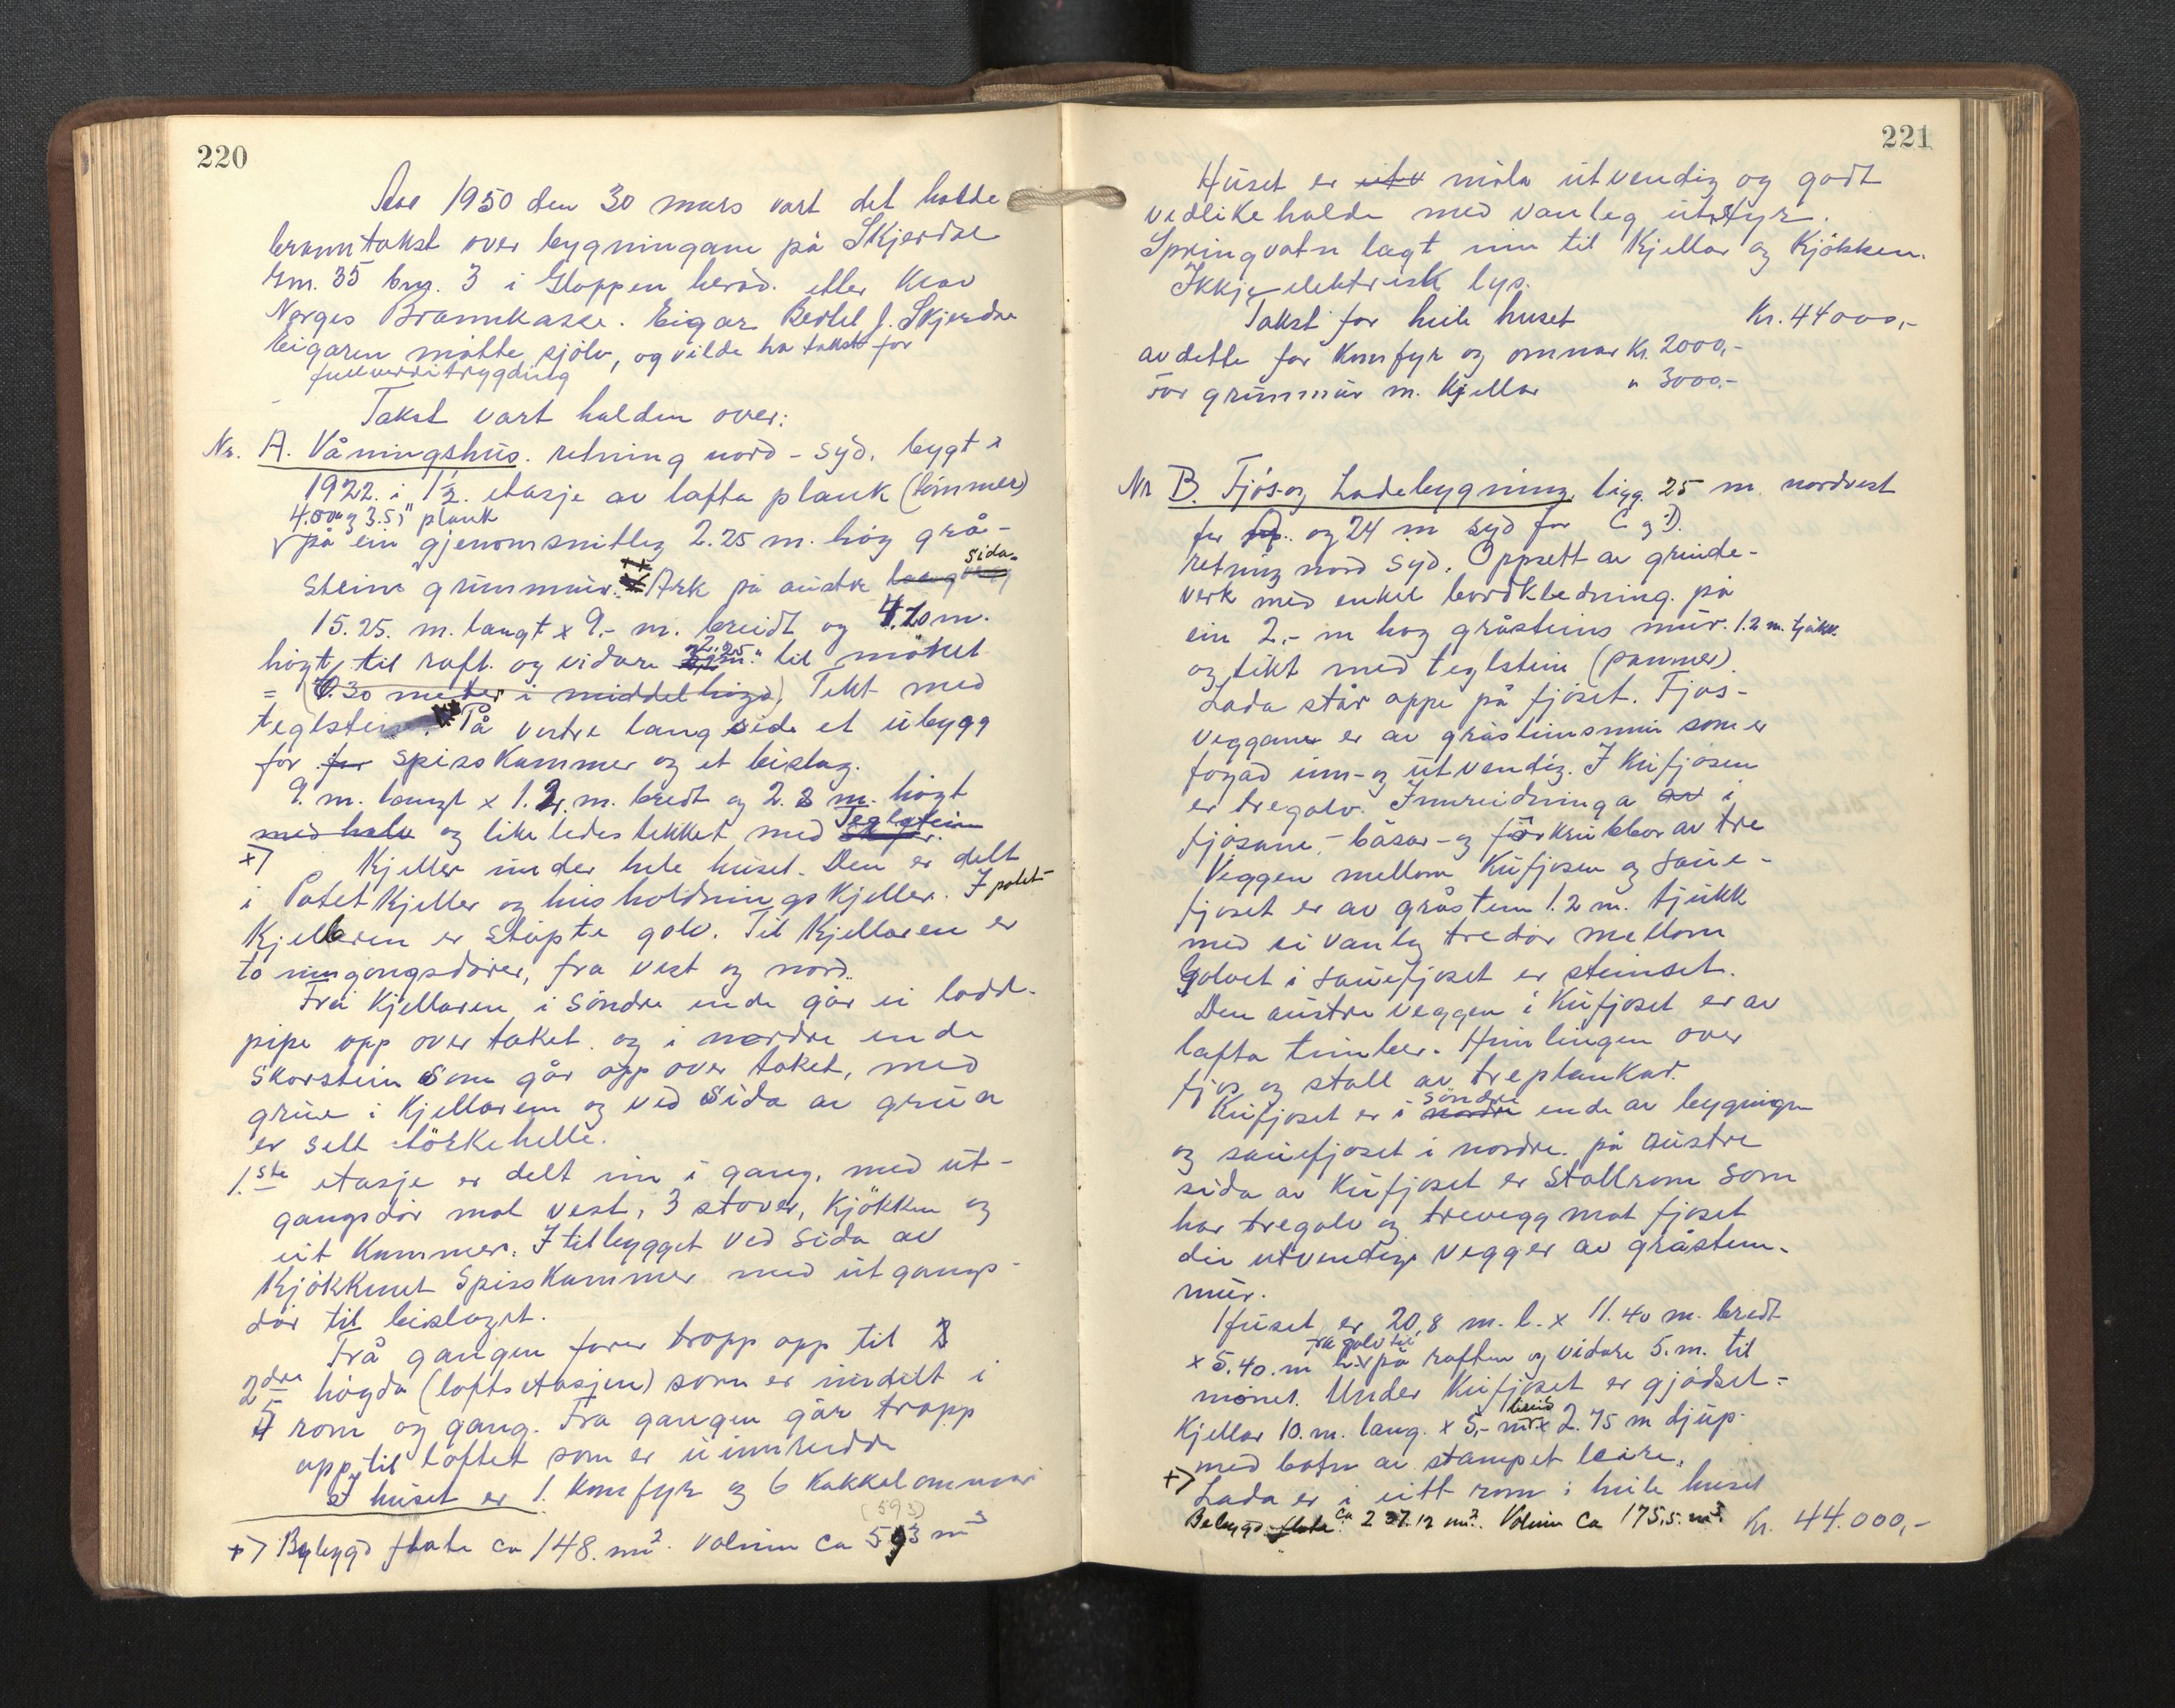 220
Aar 1950 den 30 mars vart det halde
branntakst over bygningane på Skjerdal
gnr. 35 bnr. 3 i Gloppen herad. etter krav
Norges Brannkasse. Eigar Bertel J. Skjerdal
Eigaren møtte sjølv, og vilde ha takst for
fullverditrygding
Takst vart halden over:
Nr. A. Våningshus. retning nord - syd. bygt i
1922. i 1½. etasje av lafta plank (tømmer)
4.00 og 3.5" plank
på ein gjenomsnitleg 2.25 m. høg grå-
steins grunnmur. Ark på austre lang sida
15.25. m. langt x 9.- m. breidt og 4.20 m.
høgt, til raft. og vidare 2.25 m. til mønet
= (6.30 meter i middelhøgd) Tekt med
teglstein. På vestre langside et übygg
for for spisskammer og et bislag.
9. m. langt x 1.2 m. bredt og 2.8 m. høgt
med halv og likeledes tekket med Teglstein
x) Kjeller under hele huset. Den er delt
i Potetkjeller og husholdningskjeller. I potet-
kjelleren er støpte golv. Til Kjellaren er
to inngongsdører, fra vest og nord.
Frå Kjellaren i søndre ende går ei lodd-
pipe opp over taket. og i nordre ende
skorstein som går opp over taket, med
grue i Kjellaren og ved sida av grua
er sett tørkehelle.
1.ste etasje er delt inn i gang, med ut-
gangsdør mot vest, 3 stover, kjøkken og
eit kammer. I tilbygget ved sida av
Kjøkkenet Spisskammer med utgangs-
dør til bislaget.
Frå gangen fører tropp opp til
2dre høgda (loftsetasjen) som er inndelt i
5 rom og gang. Fra gangen går tropp
opp til loftet som er uinnreidde
I huset er 1. komfyr og 6 kakkelomnar
(593)
x) Bybygd flate ca 148. m². volum ca 593 m³
221
Huset er utv måla utvendig og godt
vedlikehalde med vanleg utstyr.
Springvatn lagt inn til Kjellar og Kjøkken.
Ikkje elektrisk lys.
Takst for heile huset Kr. 44000,-
av dette for Komfyr og omnar Kr. 2000,-
for grunnmur m. Kjellar " 3000.-
Nr B. Fjøs og Ladebygning, ligg. 25 m. nordvest
for A. og 24 m syd for C og D.
retning nord syd. Oppsett av grinde-
verk med enkel bordkledning. på
ein 2,- m høg gråsteins mur. 1.2 m. tjukk.
og tekt med teglstein (panner).
Lada står oppe på fjøset. Fjøs-
veggane er av gråsteinsmur som er
fogad inn- og utvendig. I Kufjøsen
er tregolv. Innreidninga av i
fjøsane, - båsar - og fôrkrubbor av tre
Veggen mellom Kufjøsen og saue-
fjøset er av gråstein 1.2 m. tjukk
med ei vanleg tredør mellom
Golvet i sauefjøset er steinset.
Den austre veggen i Kufjøset er av
lafta timber. Himlingen over
fjøs og stall av treplankar.
Kufjøset er i nordre søndre ende av bygningen
og sauefjøset i nordre. på austre
sida av Kufjøset er Stallrom som
har tregolv og trevegg mot fjøset
dei utvendige vegger av gråstein-
mur.
Huset er 20,8 m. l. x 11.40 m. bredt
x 5.40. m fra golv til på raften og vidare 5. m. til
mønet. Under Kufjøset er gjødsel-
Kjellar 10. m. lang. x 5,- m breid x 2.75 m djup.
med botn av stampet leire.
x) Lada er i eitt rom i heile huset
Bebygd flate ca 237.12 m². Volum ca 175,5. m³. Kr. 44.000,-